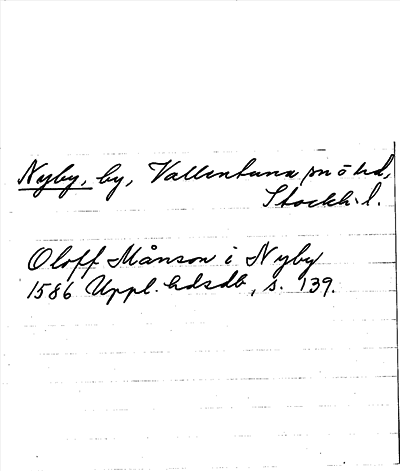 Nyby, by, Vallentuna sn ö hd,
Stockh. l.
Oloff Månson i Nyby
1586 Uppl. hdsdb, s. 139.